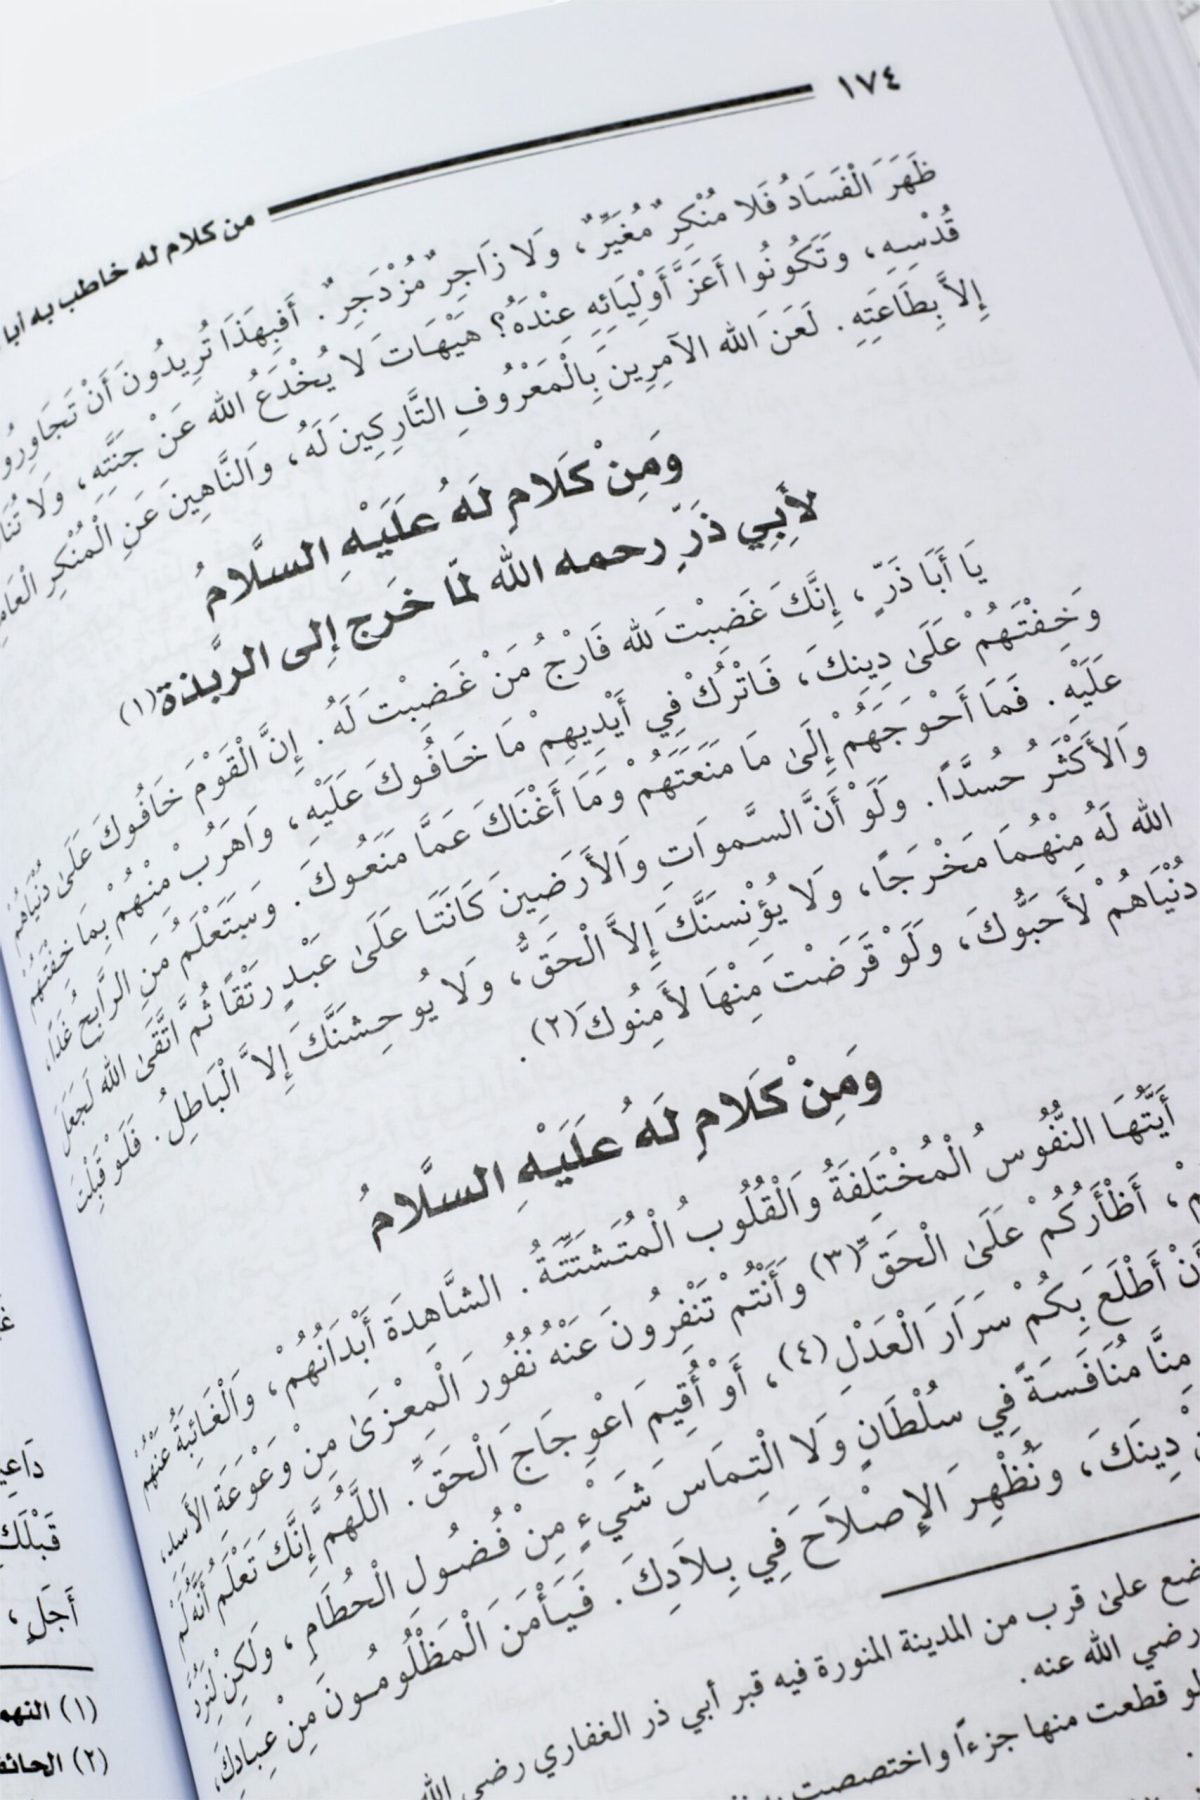 ١٧٤
من كلام له خاطب به أبا
ظَهَرَ الْفَسَادُ فَلا مُنْكِرٌ مُغَيِّرٌ، وَلا زَاجِرٌ مُزْدَجِرٌ. أَفَبِهَذَا تُرِيدُونَ أَنْ تَجَاوِرُو
قُدْسِهِ، وَتَكُونُوا أَعَزَّ أَوْلِيَائِهِ عِنْدَهُ؟ هَيْهَاتَ لا يُخْدَعُ الله عَنْ جَنَّتِهِ، وَلا
إِلاَّ بِطَاعَتِهِ. لَعَنَ الله الآمِرِينَ بِالْمَعْرُوفِ التَّارِكِينَ لَهُ، وَالنَّاهِينَ عَنِ الْمُنْكَرِ
وَمِنْ كَلامٍ لَهُ عَلَيْهِ السَّلامُ
لأَبِي ذَرٍّ رحمه الله لمّا خَرج إلى الرَّبَذة (١)
يَا أَبَا ذَرٍّ، إِنَّكَ غَضِبْتَ لله فَارْجُ مَنْ غَضِبْتَ لَهُ. إِنَّ الْقَوْمَ خَافُوكَ عَلَىٰ دُنْيَاهُمْ
وَخِفْتَهُمْ عَلَىٰ دِينِكَ، فَاتْرُكْ فِي أَيْدِيهِمْ مَا خَافُوكَ عَلَيْهِ، وَاهْرُبْ مِنْهُمْ بِمَا خِفْتَهُمْ
عَلَيْهِ. فَمَا أَحْوَجَهُمْ إِلَىٰ مَا مَنَعْتَهُمْ وَمَا أَغْنَاكَ عَمَّا مَنَعُوكَ. وَسَتَعْلَمُ مَنِ الرَّابِحُ غَدًا،
وَالأَكْثَرُ حُسَّدًا. وَلَوْ أَنَّ السَّموَاتِ وَالأَرَضِينَ كَانَتَا عَلَىٰ عَبْدٍ رَتْقًا ثُمَّ اتَّقَىٰ الله لَجَعَلَ
الله لَهُ مِنْهُمَا مَخْرَجًا، وَلا يُؤْنِسَنَّكَ إِلاَّ الْحَقُّ، وَلا يُوحِشَنَّكَ إِلاَّ الْبَاطِلُ. فَلَوْ قَبِلْتَ
دُنْيَاهُمْ لأَحَبُّوكَ، وَلَوْ قَرَضْتَ مِنْهَا لأَمِنُوكَ (٢).
وَمِنْ كَلامٍ لَهُ عَلَيْهِ السَّلامُ
أَيَّتُهَا النُّفُوسُ الْمُخْتَلِفَةُ وَالْقُلُوبُ الْمُتَشَتِّتَةُ. الشَّاهِدَةُ أَبْدَانُهُمْ، وَالْغَائِبَةُ عَنْهُمْ
مْ، أَظْأَرُكُمْ عَلَىٰ الْحَقِّ (٣) وَأَنْتُمْ تَنْفِرُونَ عَنْهُ نُفُورَ الْمِعْزَىٰ مِنْ وَعْوَعَةِ الأَسَدِ،
أَنْ أَطْلَعَ بِكُمْ سَرَارَ الْعَدْلِ (٤)، أَوْ أُقِيمَ اعْوِجَاجَ الْحَقِّ. اللَّهُمَّ إِنَّكَ تَعْلَمُ أَنَّهُ لَمْ
مِنَّا مُنَافَسَةً فِي سُلْطَانٍ وَلا الْتِمَاسَ شَيْءٍ مِنْ فُضُولِ الْحُطَامِ، وَلكِنْ لِنَرُدَّ
دِينِكَ، وَنُظْهِرَ الإِصْلاَحَ فِي بِلاَدِكَ. فَيَأْمَنَ الْمَظْلُومُونَ مِنْ عِبَادِكَ،
ضع علىٰ قرب من المدينة المنورة فيه قبر أبي ذر الغفاري رضي الله
رضي الله عنه.
لو قطعت منها جزءاً واختصصت
قَبْلَكَ
أَجَلٍ،
(١) النهم
(٢) الحائف